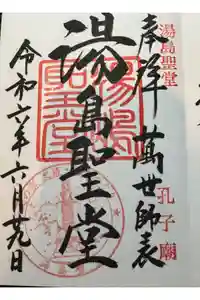 湯島聖堂 孔子廟
奉拝 萬世師表
湯島聖堂
令和六年六月廿九日
湯島聖堂